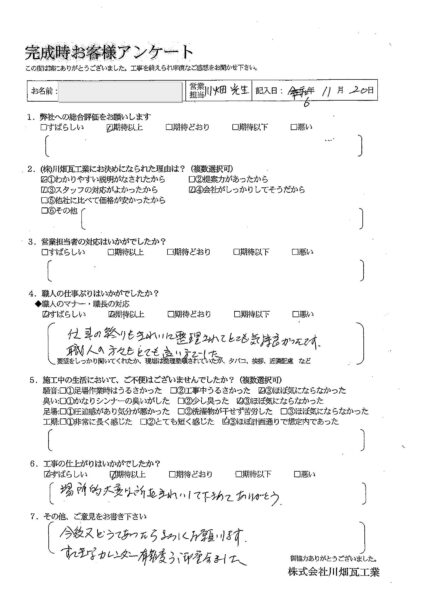 完成時お客様アンケート
この度は誠にありがとうございました。工事を終えられ率直なご感想をお聞かせ下さい。
お名前： 営業担当 川畑 記入日：6年 11月 20日
1．弊社への総合評価をお願いします
□すばらしい ☑期待以上 □期待どおり □期待以下 □悪い
2．(株)川畑瓦工業にお決めになられた理由は？（複数選択可）
☑①わかりやすい説明がなされたから □②提案力があったから
☑③スタッフの対応がよかったから ☑④会社がしっかりしてそうだから
□⑤他社に比べて価格が安かったから
□⑥その他
3．営業担当者の対応はいかがでしたか？
□すばらしい □期待以上 □期待どおり □期待以下 □悪い
4．職人の仕事ぶりはいかがでしたか？
◆職人のマナー・職長の対応
☑すばらしい ☑期待以上 □期待どおり □期待以下 □悪い
仕事の終りもきれいに整理されてとても気持良かったです。
職人の方々もとても良いまでした
要望をしっかり聞いてくれたか、現場は整理整頓されていたか、タバコ、挨拶、近隣配慮 など
5．施工中の生活において、ご不便はございませんでしたか？（複数選択可）
騒音:□①足場作業時はうるさかった □②工事中うるさかった ☑③ほぼ気にならなかった
臭い:□①かなりシンナーの臭いがした □②少し臭った ☑③ほぼ気にならなかった
足場:□①圧迫感があり気分が悪かった □②洗濯物が干せず苦労した □③ほぼ気にならなかった
工期:□①非常に長く感じた □②とても短く感じた ☑③ほぼ計画通りで想定内であった
6．工事の仕上がりはいかがでしたか？
☑すばらしい ☑期待以上 □期待どおり □期待以下 □悪い
場所的大変な所をきれいにして下さってありがとう。
7．その他、ご意見をお書き下さい
今後又どうであったらよろしくお願いします。
カレンダー
御協力ありがとうございました。
株式会社川畑瓦工業